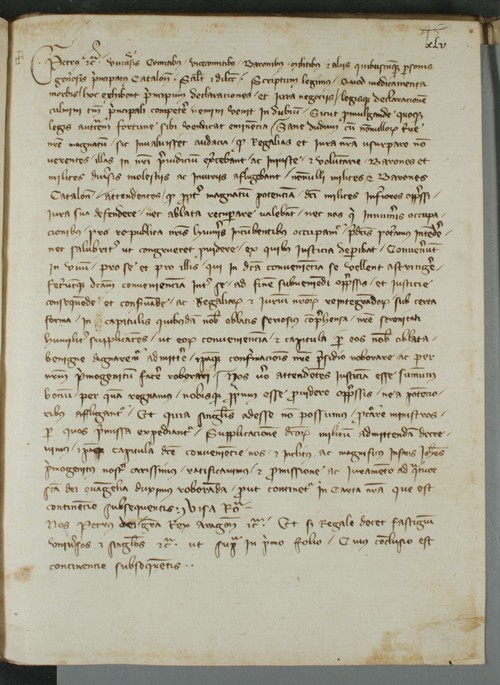 xlv
Petrus etc. Universis Comitibus, vicecomitibus, Baronibus, militibus et aliis quibuscumque personis
generosis principatus Catalonie. Salutem et dilectionem. Scriptum legimus, Quod medicamenta
morbis hoc exhibent principum declarationes, et iura negociis, legisque declarationem
culmini tantum principali competere nemini venit in dubium. Sicut promulgande quoque
legis auctorem fortune sibi vendicat eminencia. Sane dudum cum
magnatum sic invaluisset audacia, quod Regalias et iura nostra usurpare non
verentes, illas in nostrum preiudicium exercebant ac iniuste et voluntarie, Barones et
milites diversis molestiis ac iniuriis affligebant, nonnulli milites et Barones
Catalonie, attendentes quod propter magnatum potenciam dicti milites inferiores oppressi
iura sua defendere, nec ablata recuperare valebant, nec nos qui innumeris occupa
cionibus pro re publica nostris humeris incumbentibus occupamur, predictis poteramus intendere,
nec salubriter ut congrueret providere, ex quibus Iusticia deperibat. Convenerunt
in unum, pro se et pro illis qui in dicta conveniencia se vellent astringere,
feceruntque dictam convenienciam inter se, ad finem subveniendi oppressis, et Iusticie
consequende et conservande, ac Regaliarum et Iurium nostrorum reintegrandorum sub certa
forma, in capitulis quibusdam nobis oblatis seriosius comprehensa, nostre serenitati
humiliter supplicantes, ut eorum conveniencia et capitula per eos nobis oblata,
benigne dignaremur admittere, ipsaque confirmacionis nostre presidio roborare, ac per
nostrum primogenitum facere roborari. Nos vero attendentes Iusticiam esse summum
bonum per quam regnamus, nobisque proprium esse providere oppressis, ne a potencio
ribus affligantur. Et quia singulis adesse non possumus, procurare ministros,
per quos premissa expediantur. Supplicacionem dictorum militum admittendam decre
vimus, ipsaque capitula dicte conveniencie nos, et inclitus ac magnificus Infans Iohannes
primogenitus noster carissimus, ratificavimus, et promissione ac Iuramento ad quatuor
sancta dei evangelia duximus roboranda, prout continetur in Carta nostra que est
continencie subsequentis. Visa Ro.
Nos Petrus dei gratia Rex Aragonum etc. Et si Regale decet fastigium
universos et singulos etc. ut supra in primo folio. Cuius conclusio est
continencie subsequentis..